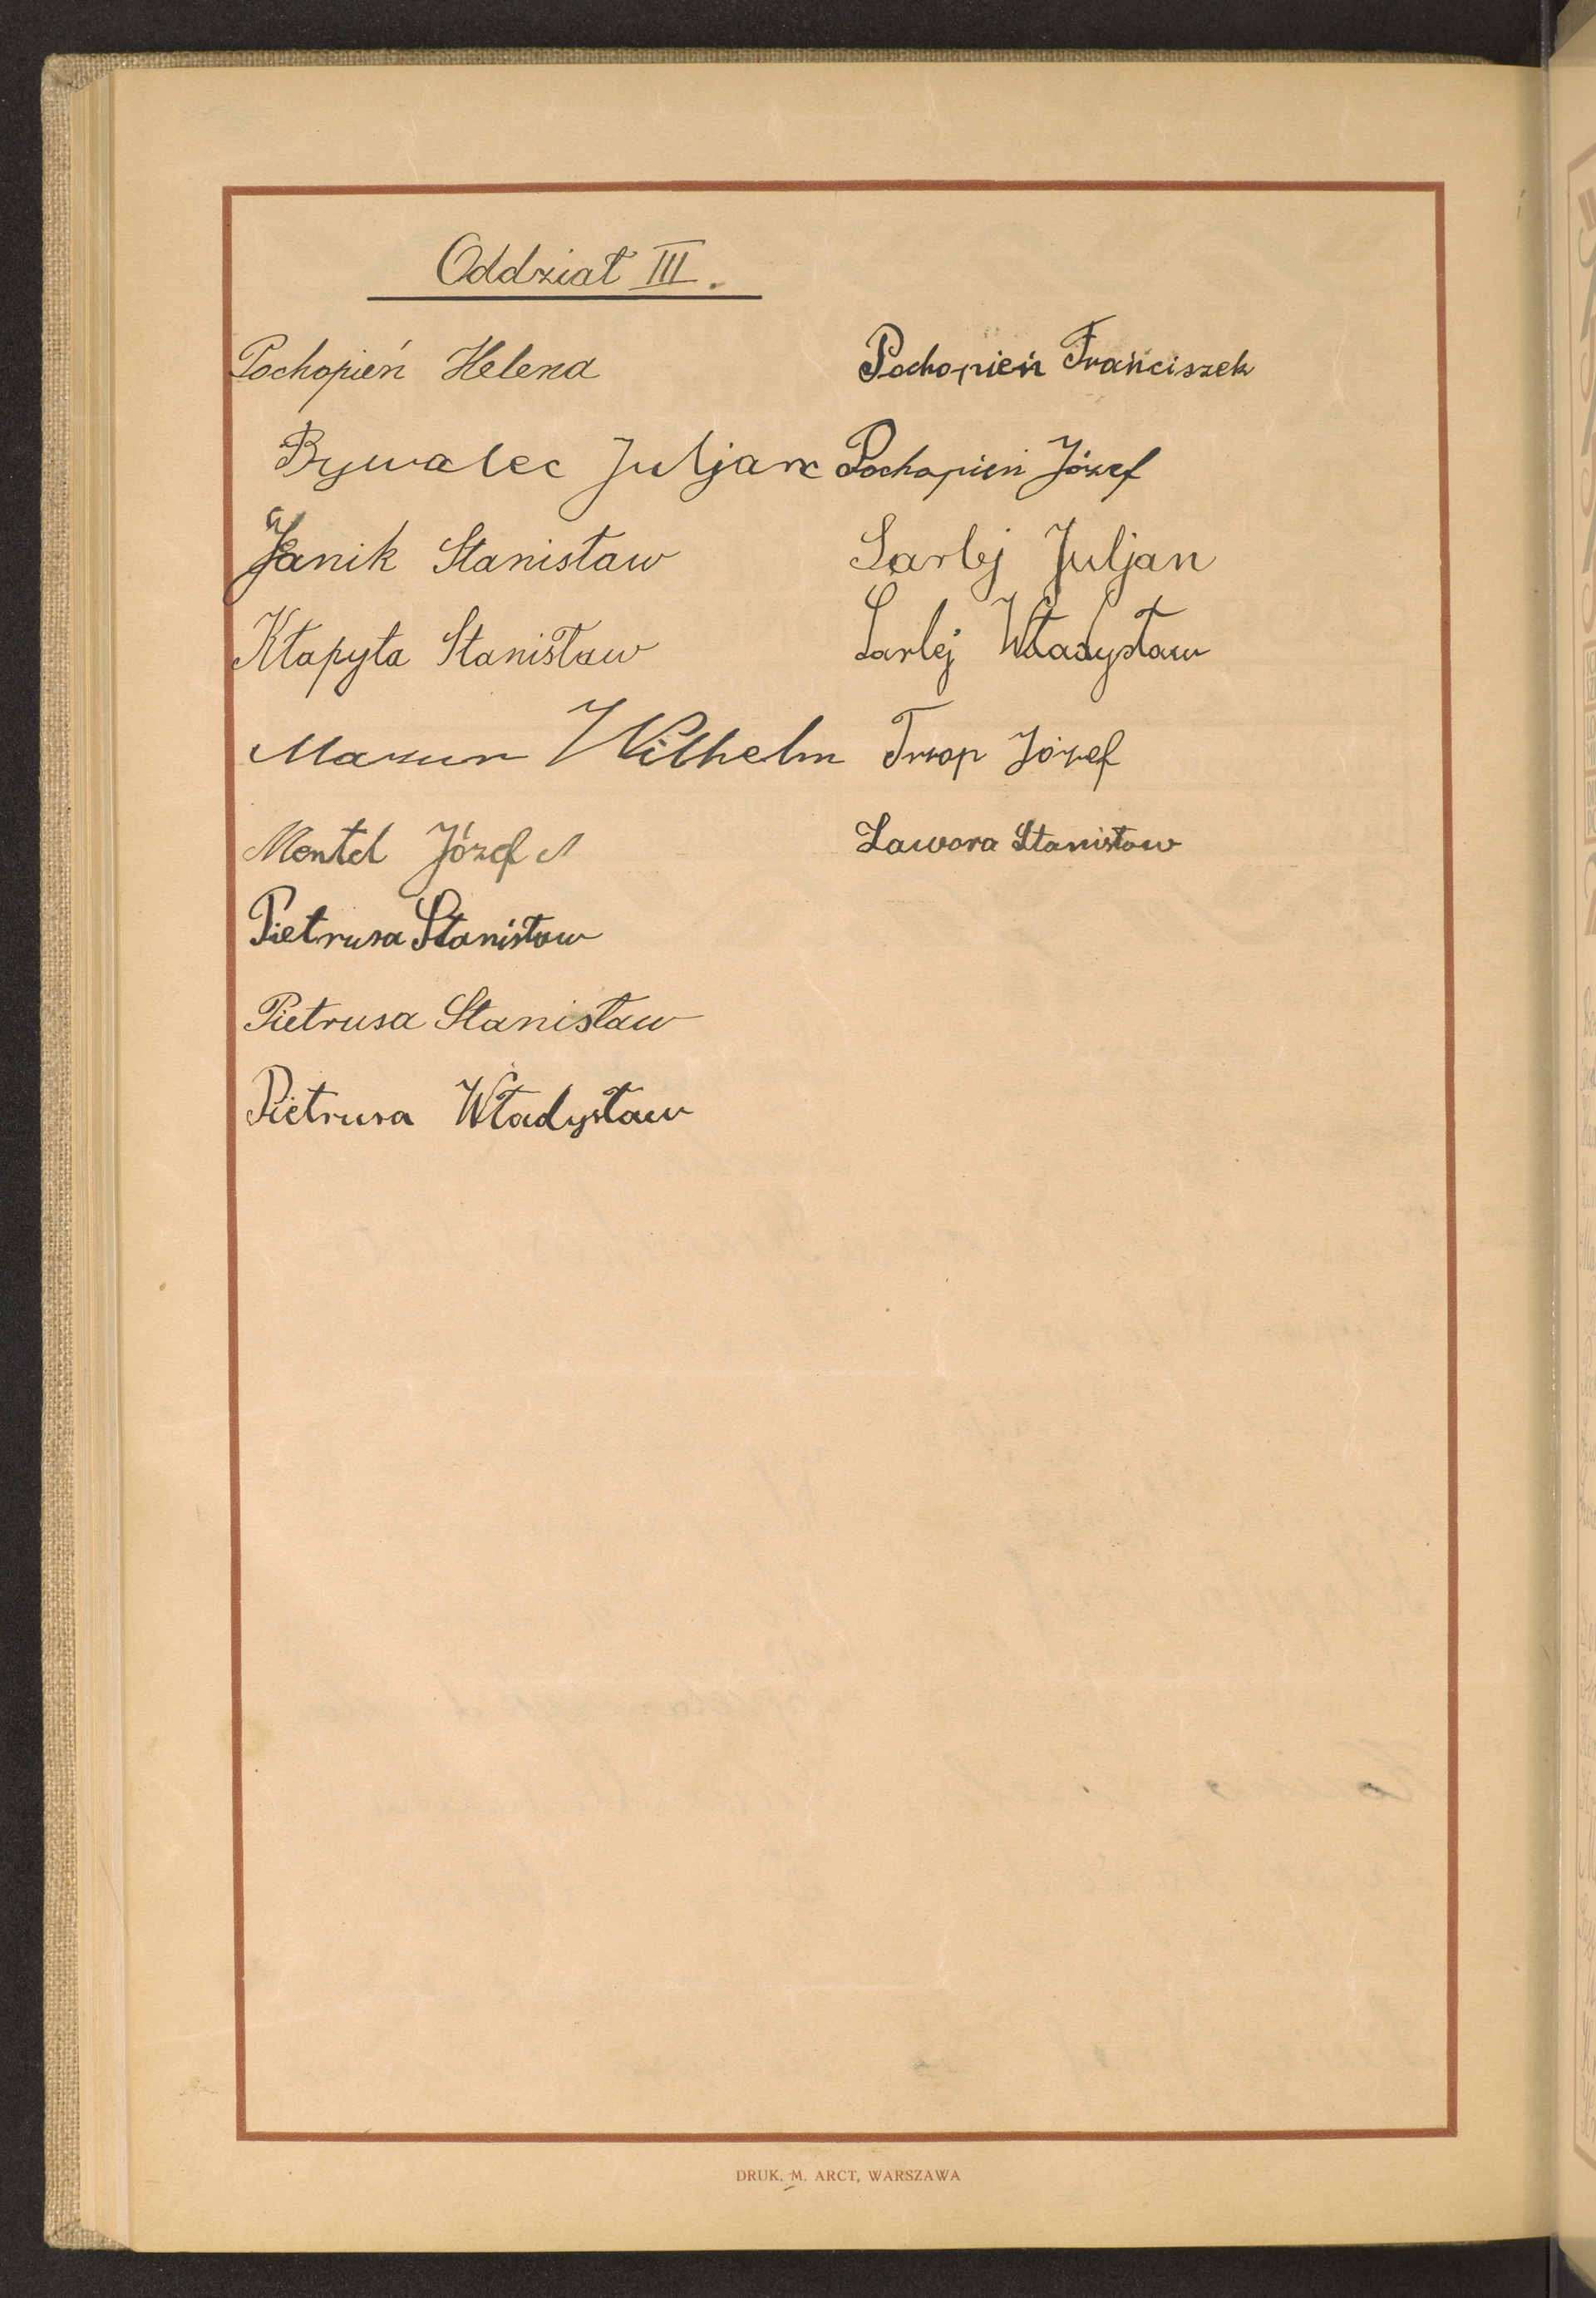 Oddział III.
Pochopień Helena
Bywalec Juljan
Janik Stanisław
Kłapyta Stanisław
Mazur Wilhelm
Mentel Józef
Pietrusa Stanisław
Pietrusa Stanisław
Pietrusa Władysław
Pochopień Franciszek
Pochopień Józef
Sarlej Juljan
Sarlej Władysław
Trzop Józef
Zawora Stanisław
DRUK. M. ARCT, WARSZAWA